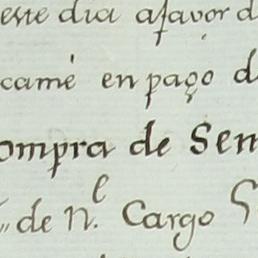 este dia afavor d
came en paço d
ompra de Sem
de N.l Cargo